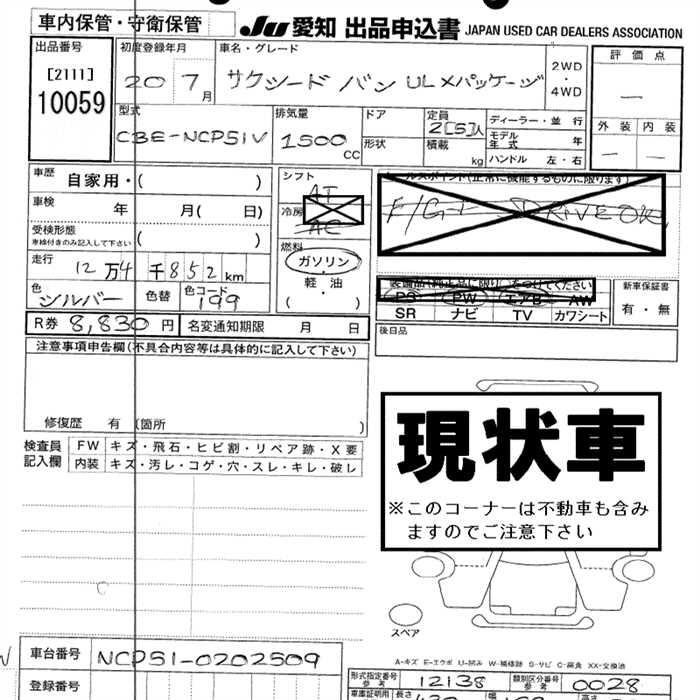 車内保管・守衛保管
JU 愛知 出品申込書 JAPAN USED CAR DEALERS ASSOCIATION
出品番号
[2111]
10059
初度登録年月
20 7月
車名・グレード
サクシード バン UL Xパッケージ
2WD
・
4WD
評価点
—
外装 内装
— —
型式
CBE-NCP51V
排気量
1500 CC
ドア
形状
定員
2[5]人
積載
kg
ディーラー・並行
モデル年式 年
ハンドル 左・右
車歴 自家用・( )
車検 年 月( 日)
受検形態
車検付きのみ記入して下さい ( )
走行 12万4千852km
色 シルバー 色替 色コード 199
シフト
AT
冷房
AC
燃料
ガソリン
・
軽油
( )
セールスポイント(正常に機能するものに限ります)
F/G DRIVE OK
装備品(純正品に限り)をつけてください
PS PW エアB AW
SR ナビ TV カワシート
新車保証書
有・無
R券 8,830円 名変通知期限 月 日
後日品
注意事項申告欄(不具合内容等は具体的に記入して下さい)
修復歴 有 (箇所 )
検査員記入欄
FW キズ・飛石・ヒビ割・リペア跡・X要
内装 キズ・汚レ・コゲ・穴・スレ・キレ・破レ
現状車
※このコーナーは不動車も含み
ますのでご注意下さい
スペア
A-キズ E-エクボ U-凹み W-補修跡 S-サビ C-腐食 XX-交換済
車台番号 NCP51-0202509
登録番号
形式指定番号 参考 12138
類別区分番号 参考 0028
車庫証明用 長さ